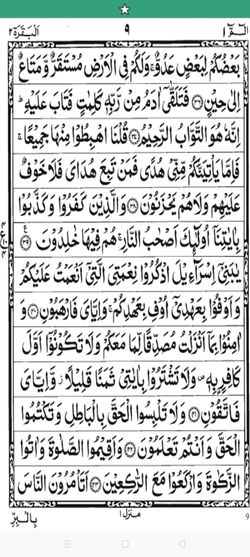 الٓمّٓ ١ ٩ اَلْبَقَرَة ٢
بَعْضُكُمْ لِبَعْضٍ عَدُوٌّ ۚ وَلَكُمْ فِي الْاَرْضِ مُسْتَقَرٌّ وَّمَتَاعٌ
اِلٰى حِيْنٍ ﴿٣٦﴾ فَتَلَقّٰٓى اٰدَمُ مِنْ رَّبِّهٖ كَلِمٰتٍ فَتَابَ عَلَيْهِ ؕ
اِنَّهٗ هُوَ التَّوَّابُ الرَّحِيْمُ ﴿٣٧﴾ قُلْنَا اهْبِطُوْا مِنْهَا جَمِيْعًا ۚ
فَاِمَّا يَاْتِيَنَّكُمْ مِّنِّيْ هُدًى فَمَنْ تَبِعَ هُدَايَ فَلَا خَوْفٌ
عَلَيْهِمْ وَلَا هُمْ يَحْزَنُوْنَ ﴿٣٨﴾ وَالَّذِيْنَ كَفَرُوْا وَكَذَّبُوْا
بِاٰيٰتِنَآ اُولٰٓئِكَ اَصْحٰبُ النَّارِ ۚ هُمْ فِيْهَا خٰلِدُوْنَ ﴿٣٩﴾
يٰبَنِيْٓ اِسْرَآءِيْلَ اذْكُرُوْا نِعْمَتِيَ الَّتِيْٓ اَنْعَمْتُ عَلَيْكُمْ
وَاَوْفُوْا بِعَهْدِيْٓ اُوْفِ بِعَهْدِكُمْ ۚ وَاِيَّايَ فَارْهَبُوْنِ ﴿٤٠﴾ وَ
اٰمِنُوْا بِمَآ اَنْزَلْتُ مُصَدِّقًا لِّمَا مَعَكُمْ وَلَا تَكُوْنُوْٓا اَوَّلَ
كَافِرٍۢ بِهٖ ۪ وَلَا تَشْتَرُوْا بِاٰيٰتِيْ ثَمَنًا قَلِيْلًا ؗ وَّاِيَّايَ
فَاتَّقُوْنِ ﴿٤١﴾ وَلَا تَلْبِسُوا الْحَقَّ بِالْبَاطِلِ وَتَكْتُمُوا
الْحَقَّ وَاَنْتُمْ تَعْلَمُوْنَ ﴿٤٢﴾ وَاَقِيْمُوا الصَّلٰوةَ وَاٰتُوا
الزَّكٰوةَ وَارْكَعُوْا مَعَ الرّٰكِعِيْنَ ﴿٤٣﴾ اَتَاْمُرُوْنَ النَّاسَ
منزل ١ بِالْبِرِّ